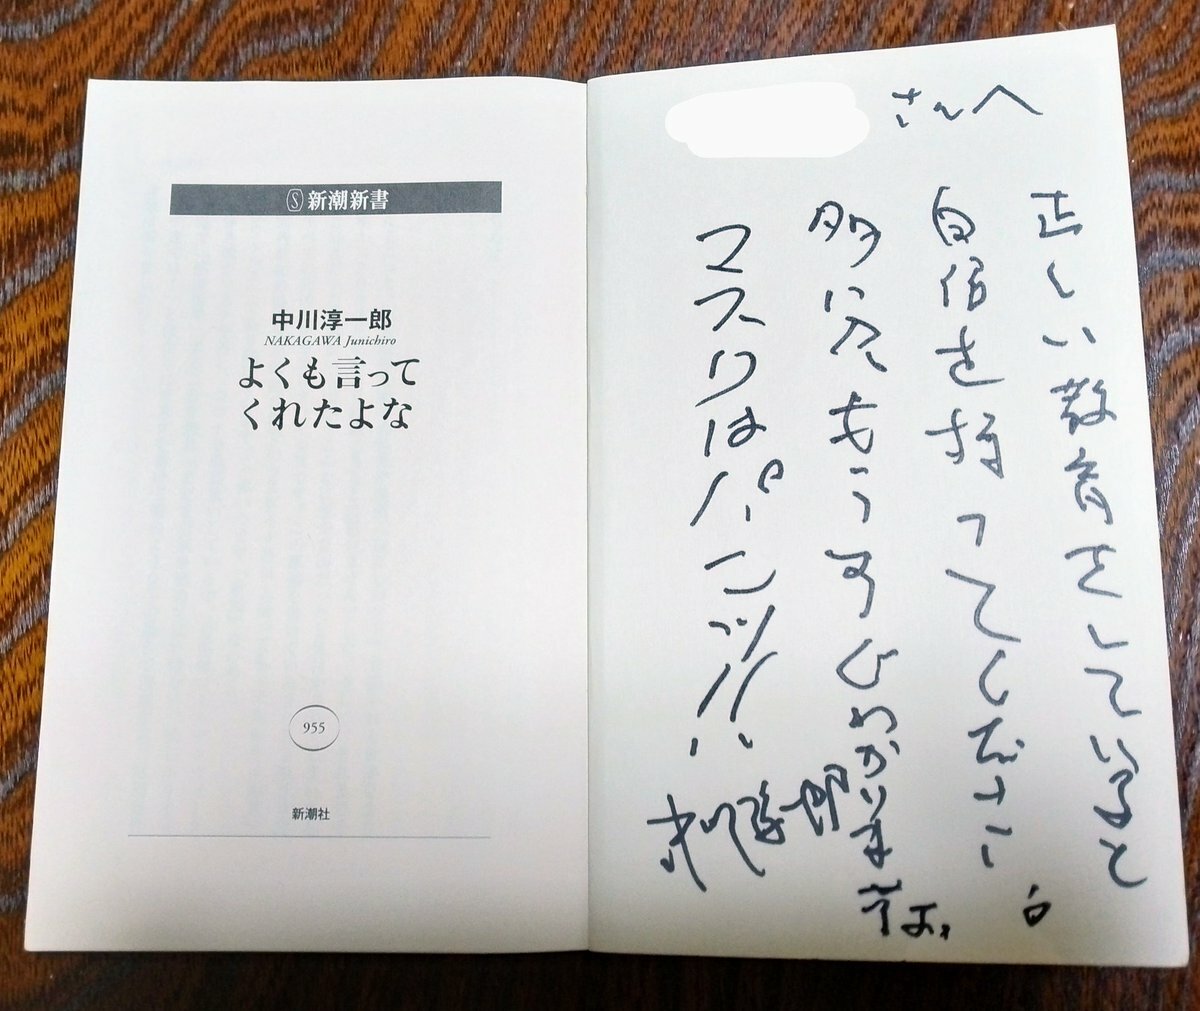 S 新潮新書
中川淳一郎
NAKAGAWA Junichiro
よくも言って
くれたよな
955
新潮社
さんへ
正しい教育をしていると
自信を持ってください。
多分もうすぐわかりますよ。
マスクはパンツ!!